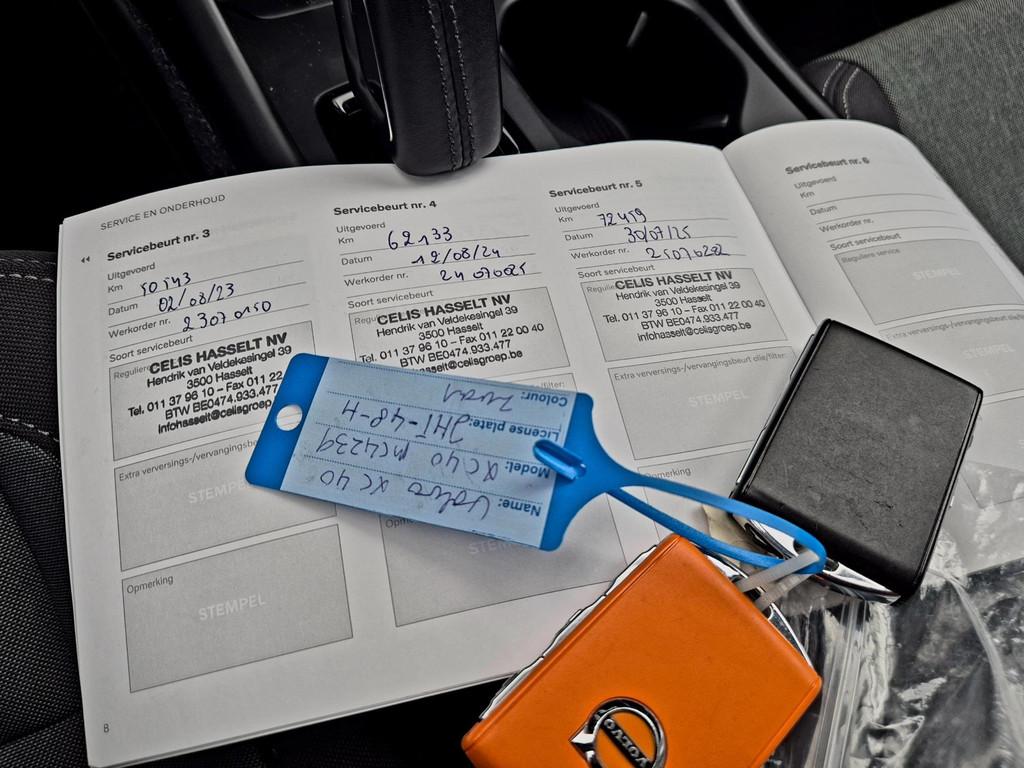 SERVICE EN ONDERHOUD
Servicebeurt nr. 3
Uitgevoerd
Km 50543
Datum 02/08/23
Werkorder nr. 23070150
Soort servicebeurt
Regulier
CELIS HASSELT NV
Hendrik van Veldekesingel 39
3500 Hasselt
Tel. 011 37 96 10 – Fax 011 22
BTW BE0474.933.477
infohasselt@celisgroep
Extra verversings-/vervangingsbe
STEMPEL
Opmerking
STEMPEL
8
Servicebeurt nr. 4
Uitgevoerd
Km 62133
Datum 12/08/24
Werkorder nr. 24070025
Soort servicebeurt
Reg
CELIS HASSELT NV
Hendrik van Veldekesingel 39
3500 Hasselt
Tel. 011 37 96 10 – Fax 011 22 00 40
BTW BE0474.933.477
hasselt@celisgroep.be
/filter:
Opm
STE
Servicebeurt nr. 5
Uitgevoerd
Km 72459
Datum 30/07/25
Werkorder nr. 25070202
Soort servicebeurt
Regulie
CELIS HASSELT NV
Hendrik van Veldekesingel 39
3500 Hasselt
Tel. 011 37 96 10 – Fax 011 22 00 40
BTW BE0474.933.477
infohasselt@celisgroep.be
Extra verversings-/vervangingsbeurt d/e/filter:
STEMPEL
Opmerking
Servicebeurt nr. 6
Uitgevoerd
Km
Datum
Werkorder nr.
Soort servicebeurt
Reguliere service
STEMPEL
Extra verversings-/vervangingsbeurt
STEMPEL
Name: Volvo XC40
Model: XC40 MC4239
License plate: 2HT-48-H
Colour: Zwart
VOLVO